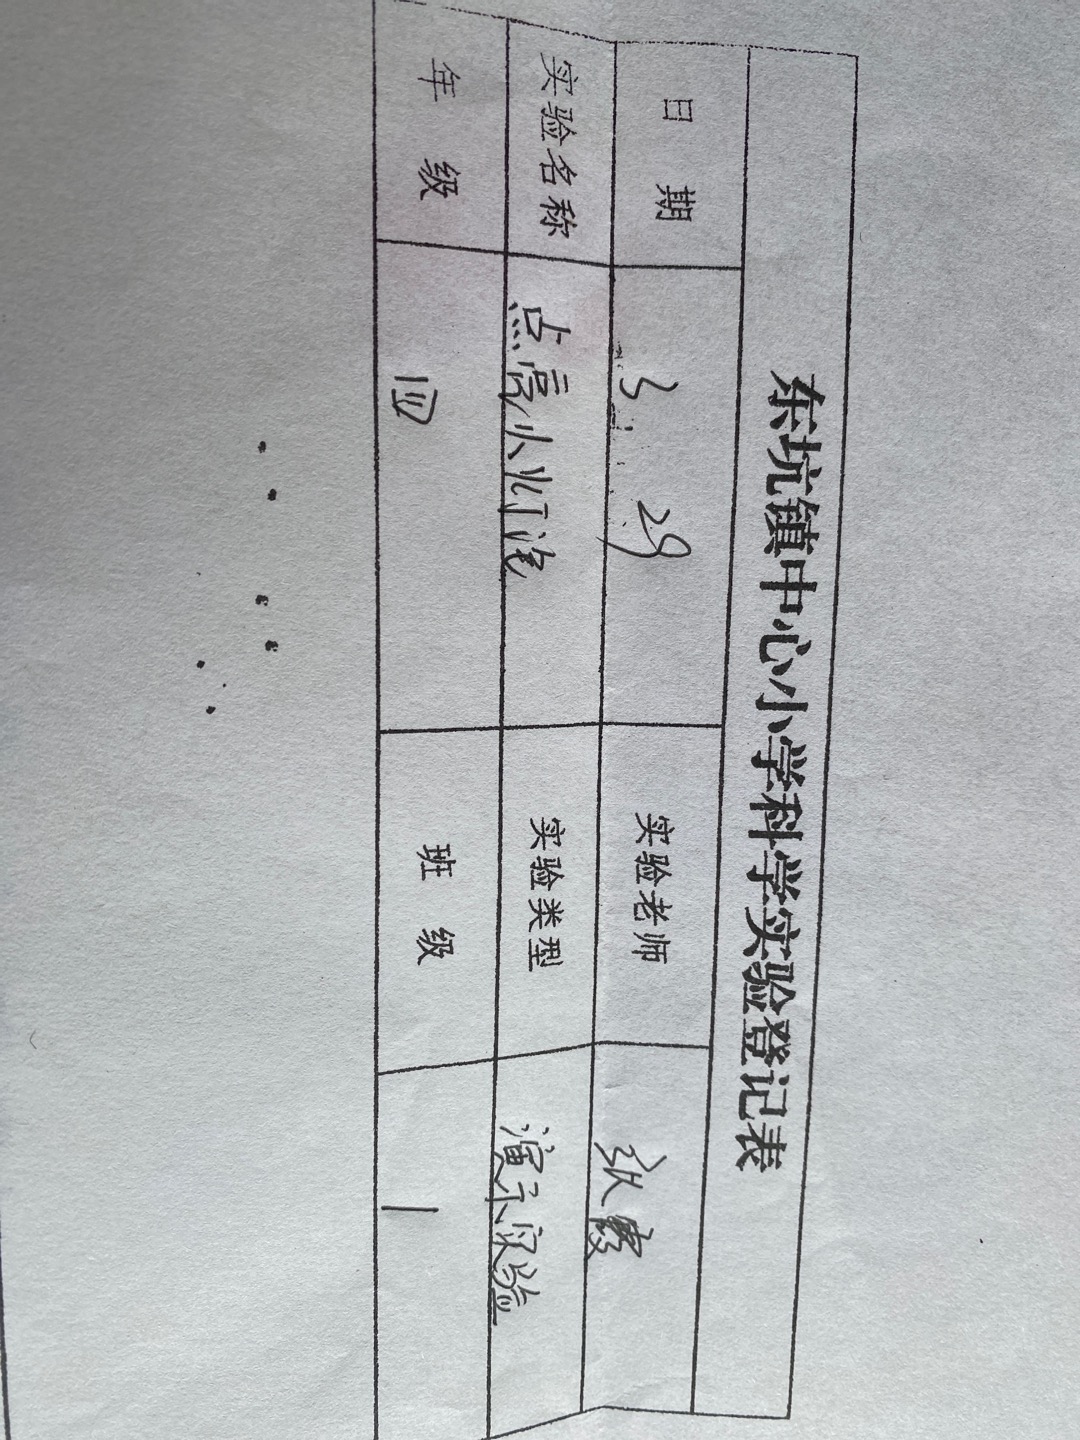 东坑镇中心小学科学实验登记表
日 期 3 29 实验老师 张霞
实验名称 点亮小灯泡 实验类型 演示实验
年 级 四 班 级 一